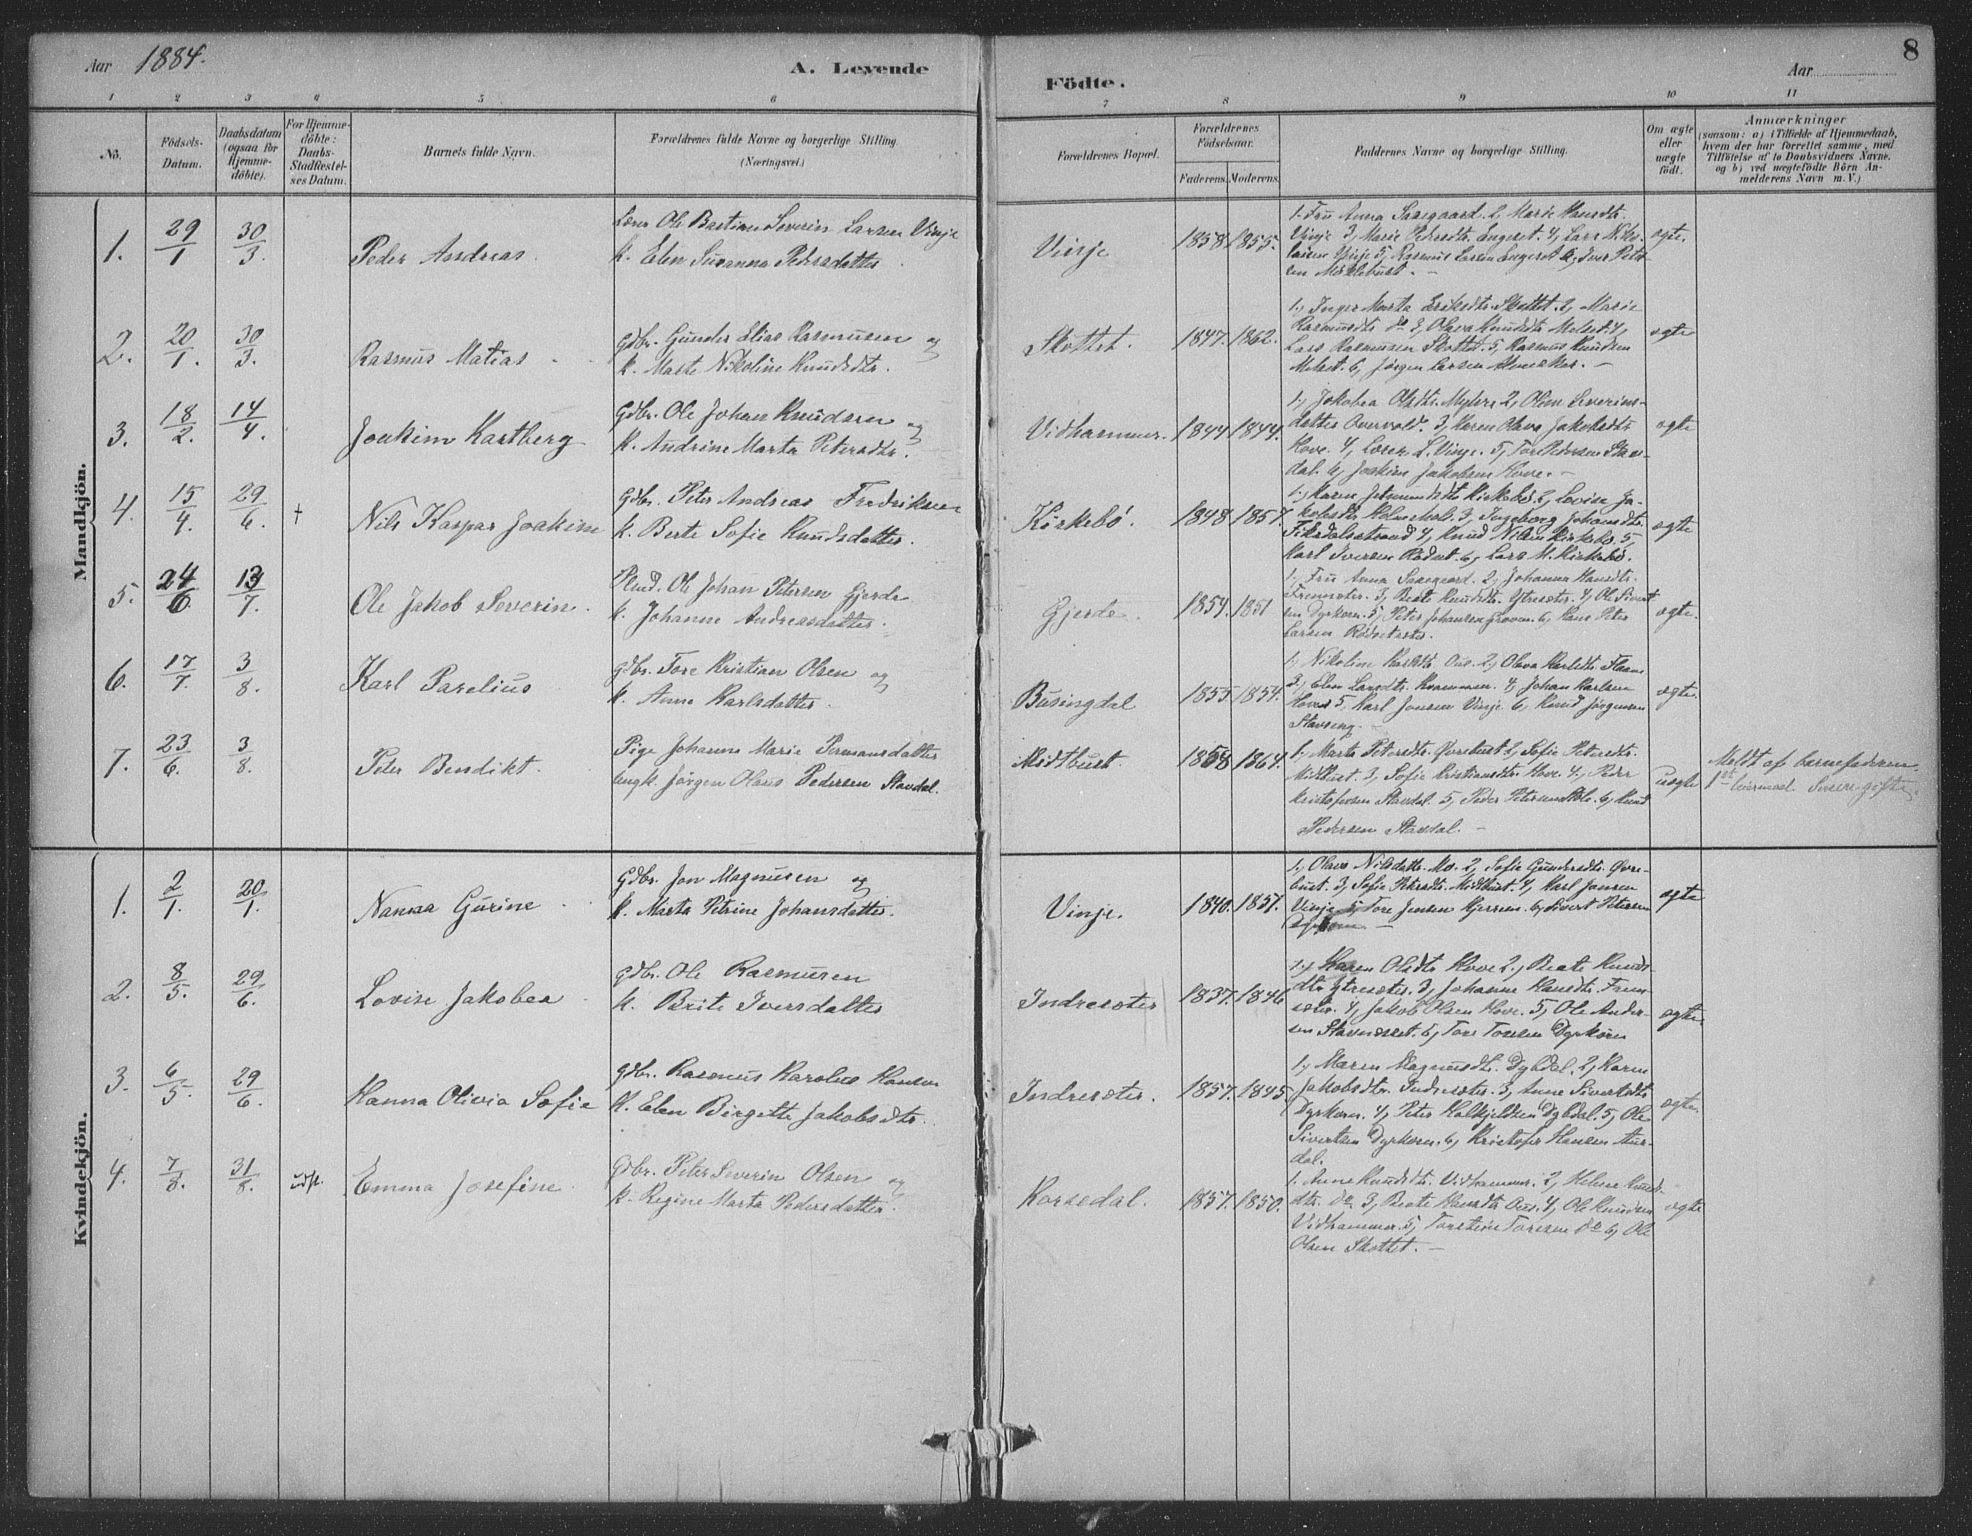 Aar 1884.
A. Levende
1 2 3 4 5 6
No.
Födsels-
Datum.
Daabsdatum
(ogsaa for
Hjemme-
döbte).
For Hjemme-
döbte:
Daabs-
Stadfæstel-
ses Datum.
Barnets fulde Navn.
Forældrenes fulde Navne og borgerlige Stilling
(Næringsvei.)
8
Födte.
Aar
7 8 9 10 11
Forældrenes Bopæl.
Forældrenes
Födselsaar.
Faderens. Moderens.
Faddernes Navne og borgerlige Stilling.
Om ægte
eller
uægte
født.
Anmærkninger
(saasom: a) i Tilfælde af Hjemmedaab,
hvem der har forrettet samme, med
Tilföielse af to Daabsvidners Navne,
og b) ved uægtefödte Börn An-
melderens Navn m. V.)
Mandkjön.
1. 29/1 30/3 Peder Andreas
Lærer Ole Bastian Severin Larsen Vinje
k. Elen Susanna Pedersdatter.
Vinje 1858 1855.
1. Fru Anna Saaegaard 2, Marie Hansdtr.
Vinje 3, Marie Pedersdtr. Engeset. 4, Lars Niko-
laisen Vinje 5, Rasmus Larsen Engeset 6, Iver Peter-
sen Myklebust. —
ægte.
2. 20/1. 30/3. Rasmus Matias
Gdbr. Gunder Elias Rasmusen og
k. Marte Nikoline Knudsdtr.
Skottet. 1847. 1862.
1, Inger Marta Eriksdtr. Skottet. 2, Marie
Rasmusdtr. do 3, Olava Knudsdtr. Melset. 4,
Lars Rasmusen Skottet. 5, Rasmus Knudsen
Melset. 6, Jørgen Larsen —
ægte
3. 18/2. 14/4. Joakim Kartberg
Gdbr. Ole Johan Knudsen og
k. Andrine Marta Petersdtr.
Vidhammer. 1844 1844.
1, Jakobea Olsdtr. 2, Oline Severins-
datter Overvold. 3, Karen Olava Jakobsdtr.
Hove. 4, Lærer L. Vinje. 5, Tore Pedersen Stav-
dal. 6, Joakim Jakobsen Hove. —
ægte
4. 15/4. 29/6. † Nils Kaspar Joakim
Gdbr. Peter Andreas Fredriksen
k. Berte Sofie Knudsdatter.
Kirkebö. 1848 1857.
1, Karen Kirkebö 2, Lovise Ja-
kobsdtr. Holmehol. 3, Ingeborg Johansdtr.
Fiksdalsstrand 4, Knud Nilsen Kirkebö 5,
Karl Iversen Rödset. 6, Lars M. Kirkebö.
ægte
5. 24/6 13/7. Ole Jakob Severin.
Ole Johan Petersen Gjerde
k. Johanne Andreasdatter.
Gjerde. 1854. 1851
1, Fru Anna Saaegaard. 2, Johanna Hansdtr.
Fremsæter. 3, Beate Knudsdtr. Ytresæter. 4, Ole Sivert-
sen Dyrkorn. 5, Peter Johansen Groven. 6, Hans Peter
Larsen Rödsetsæter.
ægte.
6. 17/7. 3/8. Karl Parelius
Gdbr. Tore Kristian Olsen og
k. Anne Karlsdatter.
Busingdal 1855 1854.
1, Nikoline Karlsdtr. Ous. 2, Olava Karlsdtr.
3, Elen Larsdtr. Kvammen. 4, Johan Karlsen
Hove 5, Karl Jonsen Vinje 6, Knud Jørgensen
Stavseng. —
ægte.
7. 23/6. 3/8. Peter Bendikt.
Pige Johanne Marie Permansdatter
ungk. Jörgen Olaus Pedersen Stavdal.
Midtbust. 1858 1864.
1, Marte Petersdtr. Övrebust 2, Sofie Petersdtr.
Midtbust. 3, Sofie Kristiansdtr. Hove. 4, Peder
Kristofersen Stavdal. 5, Peder Petersen 6, Knud
Pedersen Stavdal. —
uægte
Meldt af barnefaderen.
1ste Leiermaal. Senere gifte.
Kvindekjön.
1. 2/1. 20/1. Nanna Gurine
Gdbr. Jon Magnusen og
k. Marta Petrine Johansdatter.
Vinje. 1840. 1857.
1, Olava Nilsdatter Mo. 2, Sofie Gundersdtr. Övre-
bust. 3, Sofie Petersdtr. Midtbust. 4, Karl Jonsen
Vinje 5, Tore Jensen 6, Sivert Petersen
Dyrkorn —
ægte
2. 8/5. 29/6. Lovise Jakobea
Gdbr. Ole Rasmusen
k. Brite Iversdatter
Indresæter 1837. 1846
1, Karen Olsdtr. Hove 2, Beate Knuds-
dtr. Ytresæter. 3, Johanne Hansdtr. Frem-
sæter. 4, Jakob Olsen Hove. 5, Ole Ander-
sen Stavneset. 6, Tore Toresen Dyrkorn
ægte.
3. 6/5. 29/6. Hanna Olivia Sofie
Gdbr. Rasmus Karolus Hansen
k. Elen Birgette Jakobsdtr.
Indresæter. 1857. 1845
1, Maren Magnusdtr. Dybdal. 2, Karen
Jakobsdtr. Indresæter. 3, Anne Sivertsdtr.
Dyrkorn. 4, Peter Dybdal. 5, Ole
Sivertsen Dyrkorn. 6, Kristofer Hansen Aur-
dal.
ægte.
4. 7/8. 31/8. udf. Emma Josefine
Gdbr. Peter Severin Olsen og
k. Regine Marta Pedersdatter.
Korsedal. 1857. 1850.
1. Anne Knudsdtr. Vidhammer. 2, Helene Knuds-
dtr. do 3, Beate Hansdtr. Ous. 4, Ole Knudsen
Vidhammer. 5, Torsteine Toresen do 6, Ole
Olsen Skottet. —
ægte